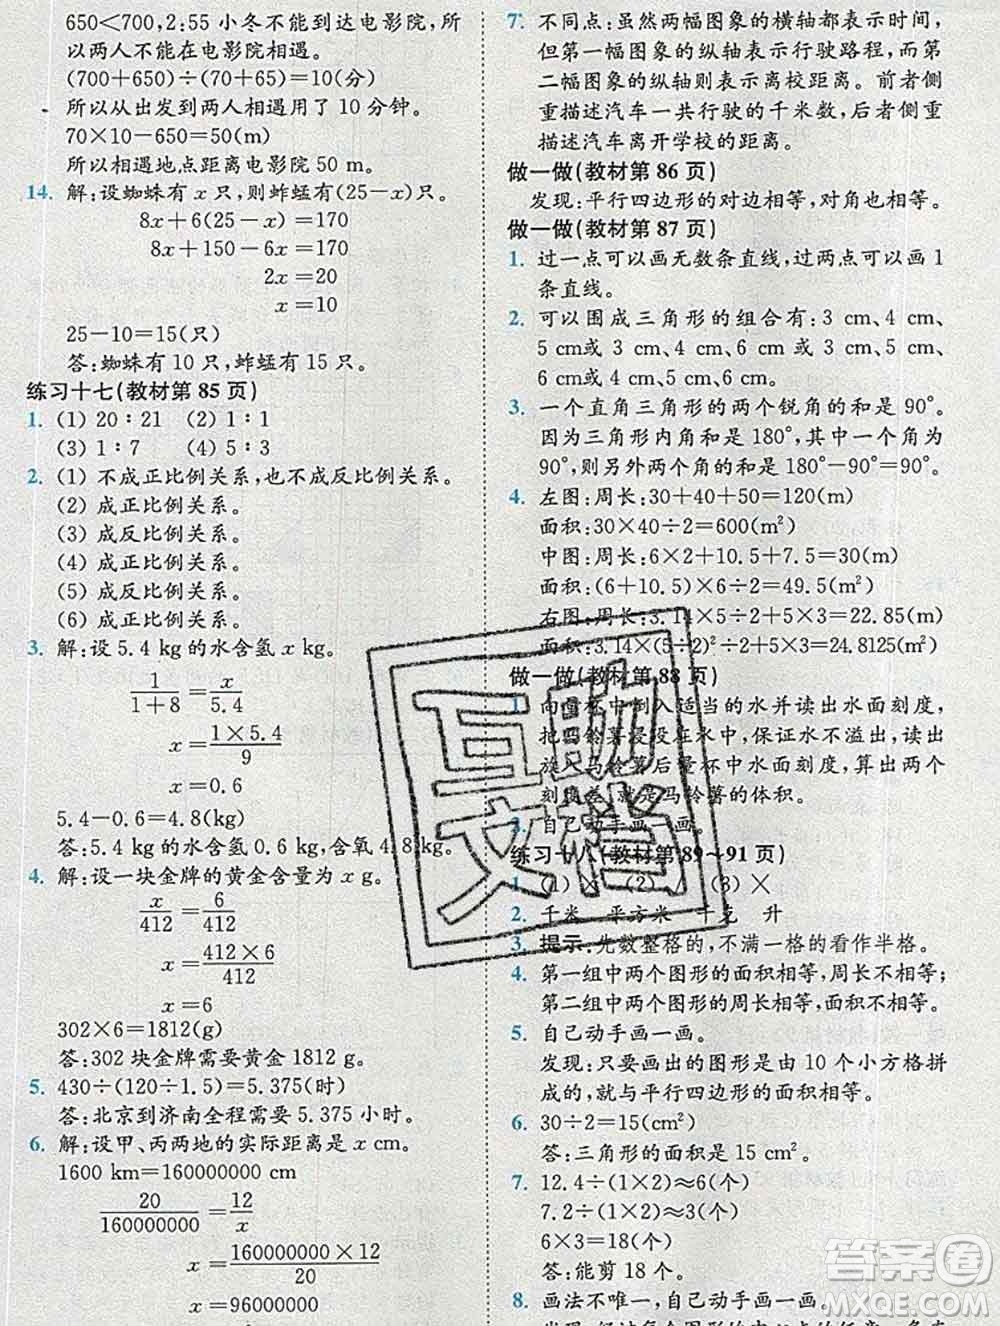 650<700,2:55 小冬不能到达电影院,所
以两人不能在电影院相遇。
(700+650)÷(70+65)=10(分)
所以从出发到两人相遇用了 10 分钟。
70×10-650=50(m)
所以相遇地点距离电影院 50 m。
14. 解:设蜘蛛有 x 只,则蚱蜢有(25-x)只。
8x+6(25-x)=170
8x+150-6x=170
2x=20
x=10
25-10=15(只)
答:蜘蛛有 10 只,蚱蜢有 15 只。
练习十七(教材第 85 页)
1. (1) 20∶21 (2) 1∶1
(3) 1∶7 (4) 5∶3
2. (1) 不成正比例关系,也不成反比例关系。
(2) 成正比例关系。
(3) 成反比例关系。
(4) 成正比例关系。
(5) 成反比例关系。
(6) 成正比例关系。
3. 解:设 5.4 kg 的水含氢 x kg。
1/(1+8)=x/5.4
x=(1×5.4)/9
x=0.6
5.4-0.6=4.8(kg)
答:5.4 kg 的水含氢 0.6 kg,含氧 4.8 kg。
4. 解:设一块金牌的黄金含量为 x g。
x/412=6/412
x=(412×6)/412
x=6
302×6=1812(g)
答:302 块金牌需要黄金 1812 g。
5. 430÷(120÷1.5)=5.375(时)
答:北京到济南全程需要 5.375 小时。
6. 解:设甲、丙两地的实际距离是 x cm。
1600 km=160000000 cm
20/160000000=12/x
x=(160000000×12)/20
x=96000000
7. 不同点:虽然两幅图象的横轴都表示时间,
但第一幅图象的纵轴表示行驶路程,而第
二幅图象的纵轴则表示离校距离。前者侧
重描述汽车一共行驶的千米数,后者侧重
描述汽车离开学校的距离。
做一做(教材第 86 页)
发现:平行四边形的对边相等,对角也相等。
做一做(教材第 87 页)
1. 过一点可以画无数条直线,过两点可以画 1
条直线。
2. 可以围成三角形的组合有:3 cm、4 cm、
5 cm或 3 cm、4 cm、6 cm或 4 cm、
5 cm、6 cm
3. 一个直角三角形的两个锐角的和是 90°。
因为三角形内角和是 180°,其中一个角为
90°,则另外两个角的和是 180°-90°=90°。
4. 左图:周长:30+40+50=120(m)
面积:30×40÷2=600(m²)
中图:周长:6×2+10.5+7.5=30(m)
面积:(6+10.5)×6÷2=49.5(m²)
右图:周长:3.14×5+2.5+5×3=22.85(m)
面积:3.14×(5÷2)²÷2+5×3=24.8125(m²)
做一做(教材第 88 页)
1. 向量杯中倒入适当的水并读出水面刻度,
把马铃薯浸没在水中,保证水不溢出,读出
放入马铃薯后量杯中水面的刻度,算出两个
刻度差,就是马铃薯的体积。
2. 自己动手画一画。
练习十八(教材第 89～91 页)
1. (1) × (2) × (3) ×
2. 千米 平方米 千克 升
3. 提示:先数整格的,不满一格的看作半格。
4. 第一组中两个图形的面积相等,周长不相等;
第二组中两个图形的周长相等,面积不相等。
5. 自己动手画一画。
发现:只要画出的图形是由 10 个小方格拼
成的,就与平行四边形的面积相等。
6. 30÷2=15(cm²)
答:三角形的面积是 15 cm²。
7. 12.4÷(1×2)≈6(个)
7.2÷(1×2)≈3(个)
6×3=18(个)
答:能剪 18 个。
8. 画法不唯一,自己动手画一画。
互助
文档
答案圈
MXQE.COM